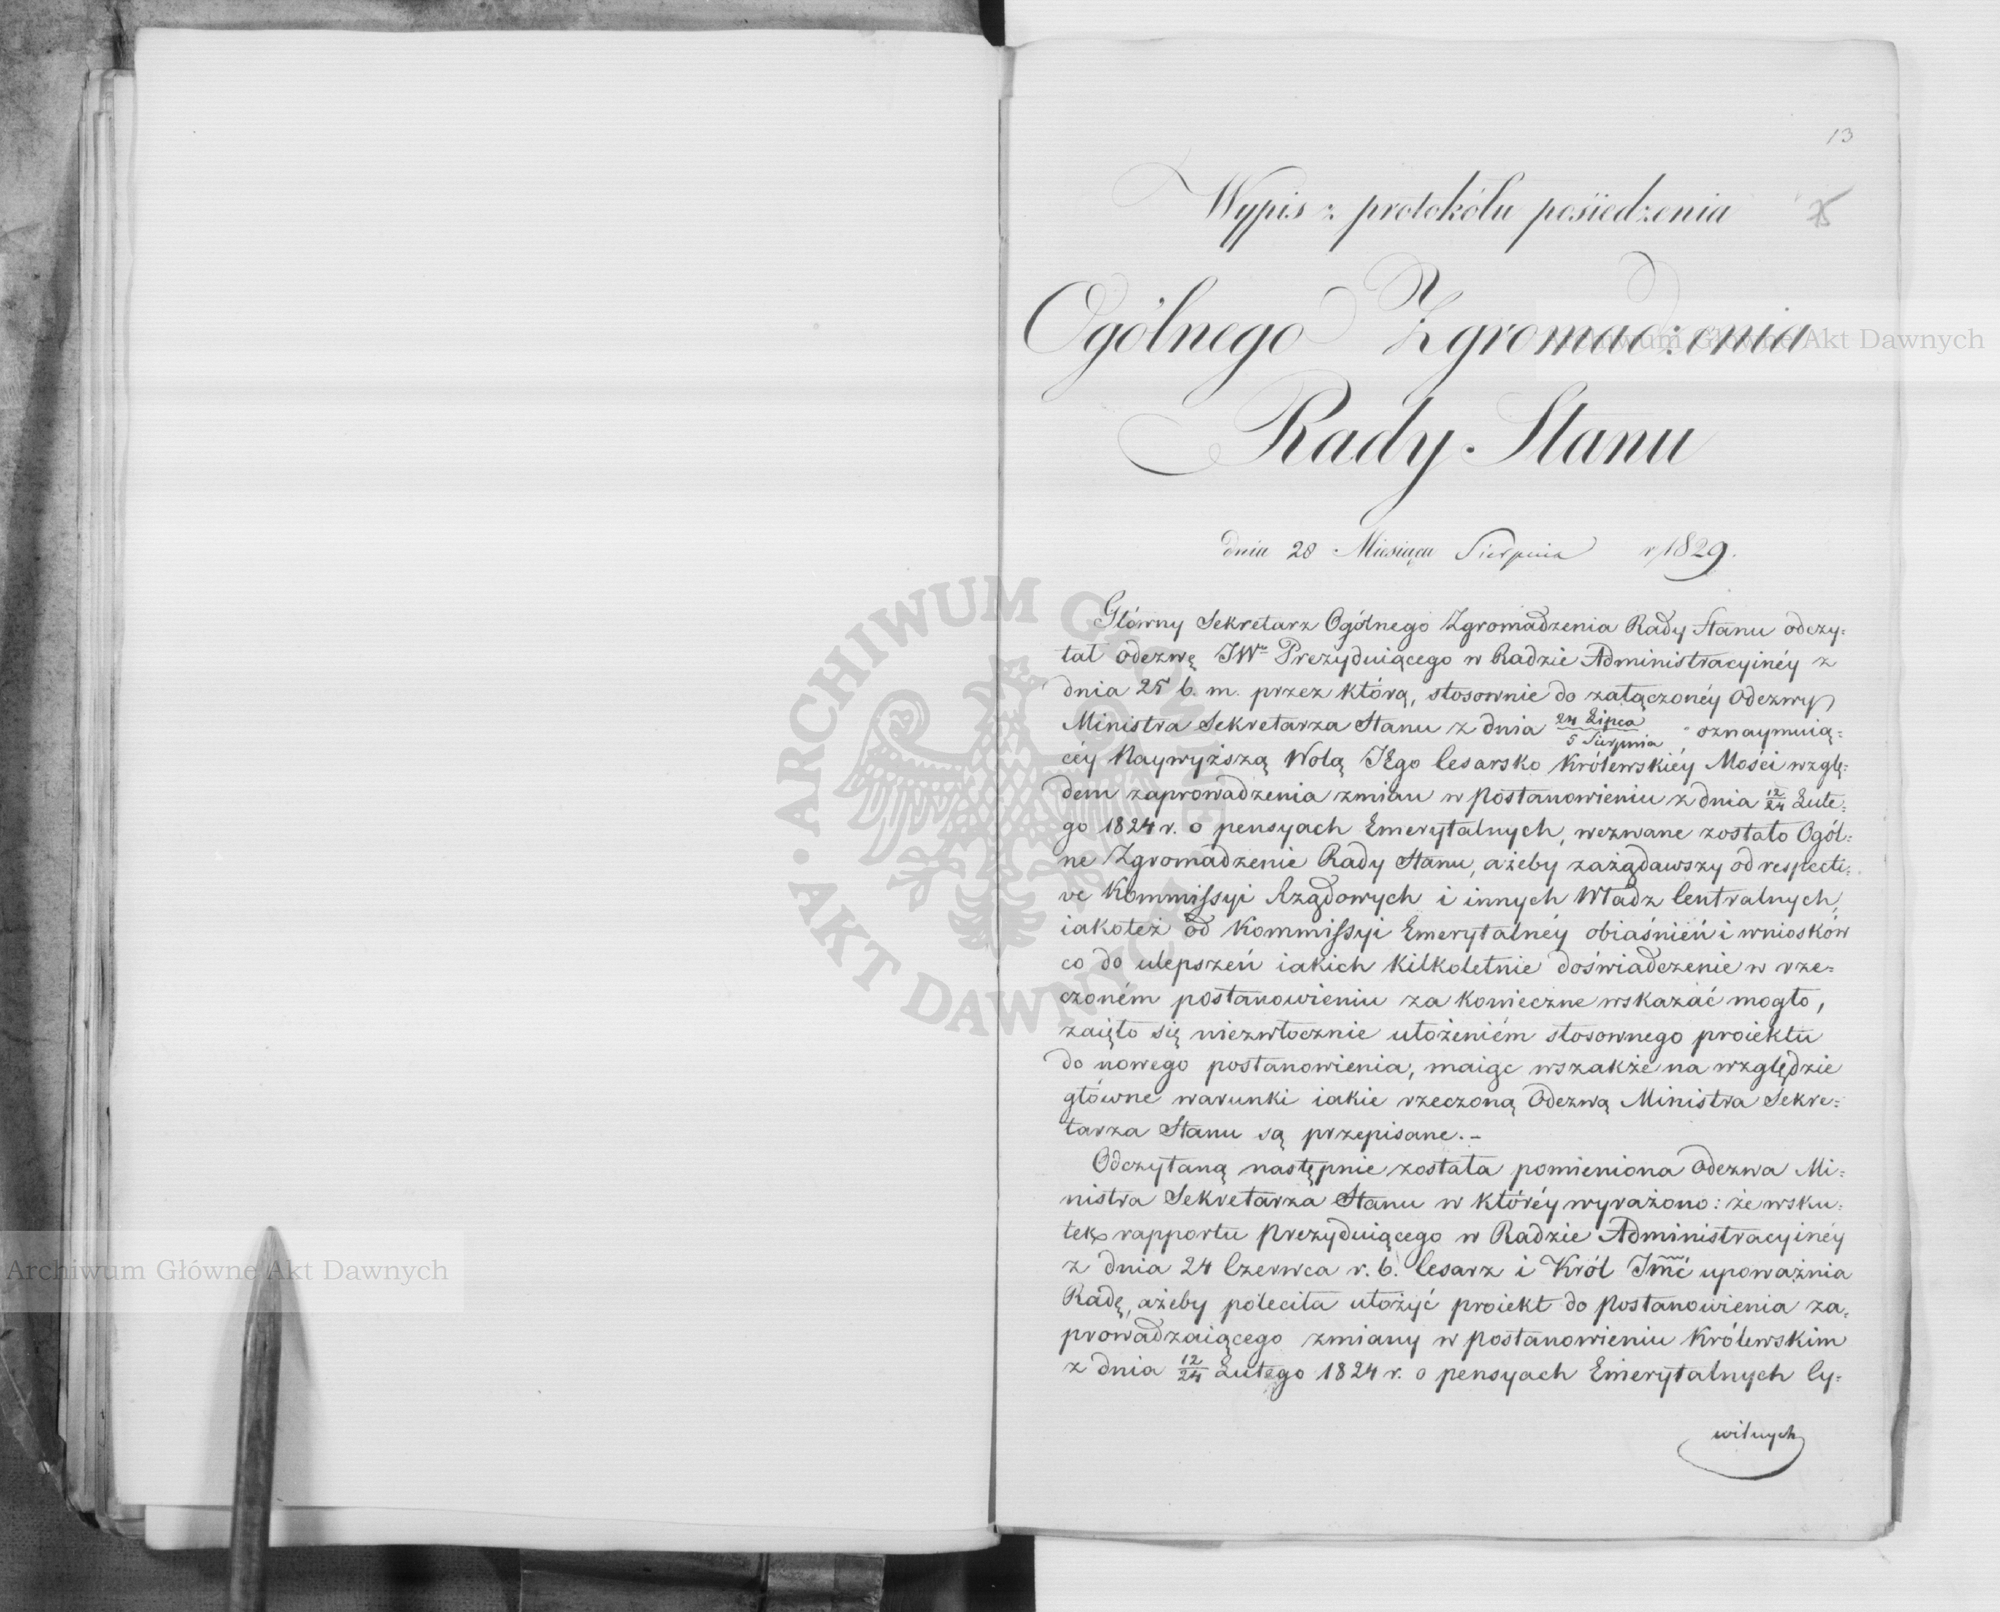 13
Wypis z protokółu posiedzenia
Ogólnego Zgromadzenia
Rady Stanu
dnia 28 Miesiąca Sierpnia r. 1829.
Główny Sekretarz Ogólnego Zgromadzenia Rady Stanu odczy-
tał odezwę JWo Prezyduiącego w Radzie Administracyinéy z
dnia 25 b. m. przez którą, stosownie do załączonéy Odezwy
Ministra Sekretarza Stanu z dnia 24 Lipca / 5 Sierpnia oznaymuią-
céy Naywyższą Wolą JEgo Cesarsko Królewskiéy Mości wzglę-
dem zaprowadzenia zmian w Postanowieniu z dnia 12/24 Lute-
go 1824 r. o pensyach Emerytalnych, wezwane zostało Ogól-
ne Zgromadzenie Rady Stanu, ażeby zażądawszy od respecti-
ve Kommissyi Rządowych i innych Władz Centralnych,
iakoteż od Kommissyi Emerytalnéy obiaśnień i wniosków
co do ulepszeń iakich kilkoletnie doświadczenie w rze-
czoném postanowieniu za konieczne wskazać mogło,
zaięło się niezwłocznie ułożeniém stosownego proiektu
do nowego postanowienia, maiąc wszakże na względzie
główne warunki iakie rzeczoną Odezwą Ministra Sekre-
tarza Stanu są przepisane.-
Odczytaną następnie została pomieniona Odezwa Mi-
nistra Sekretarza Stanu w któréy wyrażono: że wsku-
tek rapportu Prezyduiącego w Radzie Administracyinéy
z dnia 24 Czerwca r. b. Cesarz i Król Jmć upoważnia
Radę, ażeby poleciła ułożyć proiekt do Postanowienia za-
prowadzaiącego zmiany w Postanowieniu Królewskim
z dnia 12/24 Lutego 1824 r. o pensyach Emerytalnych Cy-
wilnych
ARCHIWUM GŁÓWNE AKT DAWNYCH
Archiwum Główne Akt Dawnych
Archiwum Główne Akt Dawnych